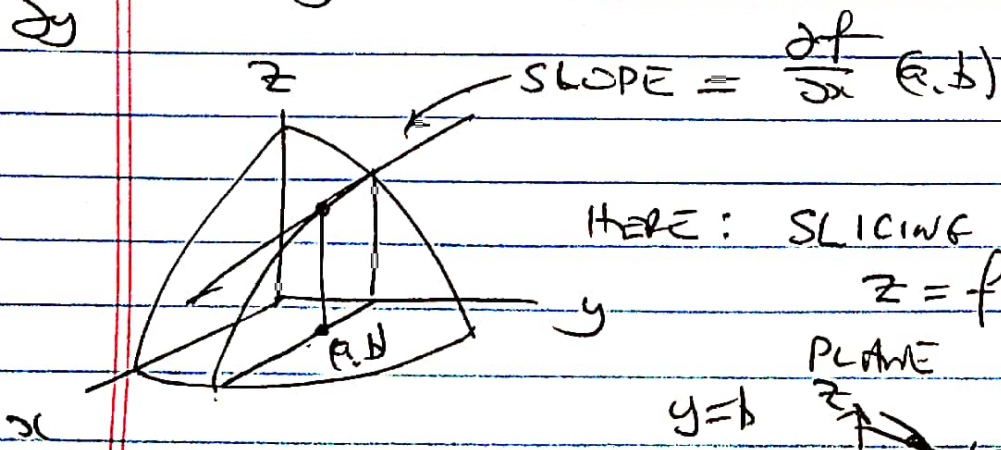 ∂y
z
SLOPE = ∂f/∂x (a,b)
HERE: SLICING
z = f
y
(a,b)
PLANE
y=b
z
x